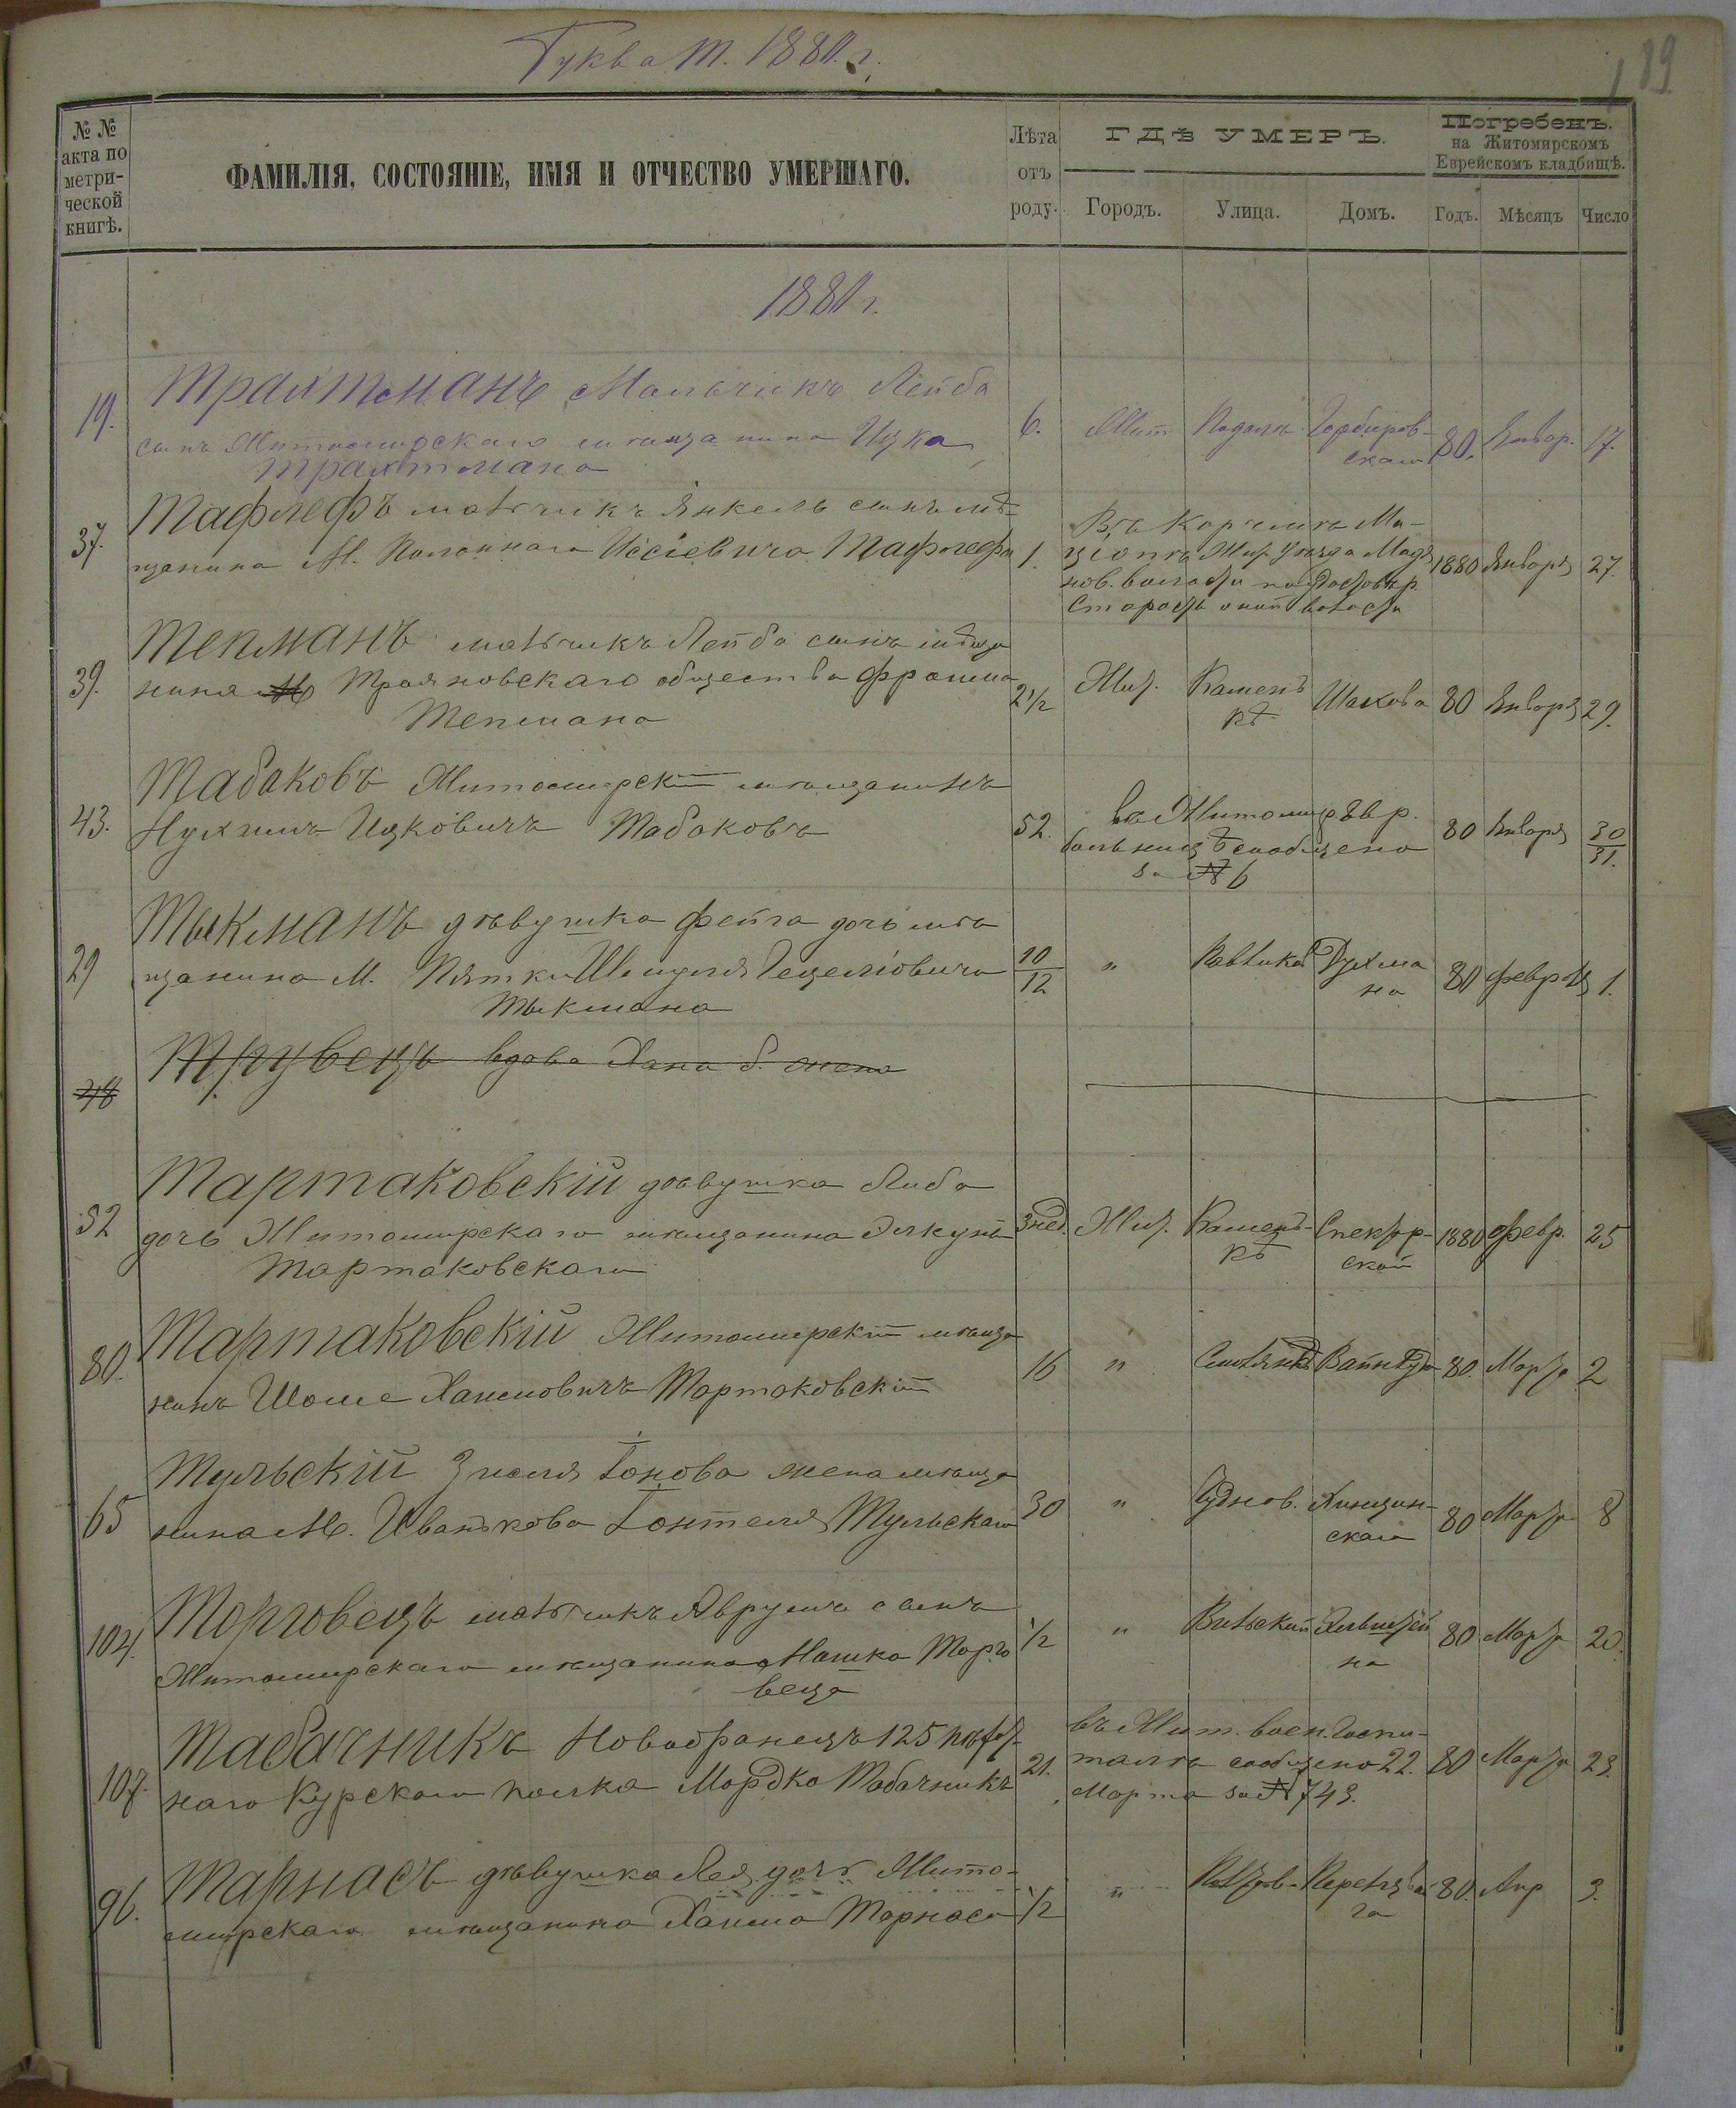 Буква Т. 1880 г.
189
№ №
акта по
метри-
ческой
книгѣ.
ФАМИЛІЯ, СОСТОЯНІЕ, ИМЯ И ОТЧЕСТВО УМЕРШАГО.
Лѣта
отъ
роду.
ГДѢ УМЕРЪ.
Городъ.
Улица.
Домъ.
Погребенъ.
на Житомирскомъ
Еврейскомъ кладбищѣ.
Годъ.
Мѣсяцъ
Число
1880 г.
19.
Трахтманъ Мальчикъ Лейба
сынъ Житомирскаго мѣщанина Ицка
Трахтмана
6. Жит. Подолъ 80. Январ. 17.
37.
Тафлефъ мальчикъ Янкель сынъ мѣ-
щанина М. Полоннаго Иссіевича Тафлефа
1.
В. Корчмѣ
Жит. уѣзда
нов. волости
Старосты оной волости
1880 Января 27.
39.
Тепманъ мальчикъ Лейба сынъ мѣща
нина Трояновскаго общества Фроима
Тепмана
2 1/2 Жит. Каменъ
кѣ
Шахова 80 Января 29.
43.
Табаковъ Житомирскій мѣщанинъ
Нухимъ Ицковичъ Табаковъ
52.
въ Житомир. Евр.
больницѣ сообщено
за № 6
80 Января 30/31.
29
Тыкманъ дѣвушка Фейга дочь мѣ
щанина М. Пятки Шмуля
Тыкмана
10/12 " Духма
на
80 февраля 1.
48
Трувецъ вдова Хана б. жена
52
Тартаковскій дѣвушка Либа
дочь Житомирскаго мѣщанина
Тартаковскаго
3 нед. Жит. Каменъ-
кѣ
Спектор-
ской
1880 февр. 25
80.
Тартаковскій Житомирскій мѣща
нинъ Шоме Хаимовичъ Тартаковскій
16 " 80. Марта 2
65
Тульскій жена мѣща
нина М. Иванкова Тульскаго
30 " Чуднов. 80 Марта 8
104.
Торговецъ мальчикъ Аврумъ сынъ
Житомирскаго мѣщанина Мошка Торго
веца
1/2 " Вильский 80 Марта 20.
107.
Табачникъ Новобранецъ 125 пѣхот-
наго Курскаго полка Мордко Табачникъ
21.
въ Жит. воен. госпи-
талѣ сообщено 22.
Марта за № 743.
80 Марта 23.
96.
Тарнасъ дѣвушка Лея дочь Жито-
мирскаго мѣщанина Хаима Тарнаса
1/2 " 80. Апр 3.